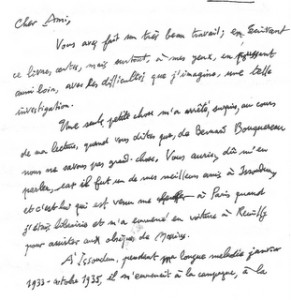 Cher Ami,
Vous avez fait un très beau travail ; en écrivant
ce livre, certes, mais surtout, à mes yeux, en poussant
aussi loin, avec les difficultés que j'imagine, une telle
investigation.
Une seule petite chose m'a arrêté, surpris, au cours
de ma lecture, quand vous dites que, de Bernard Bouquereau
nous ne savons pas grand-chose. Vous auriez dû m'en
parler, car il fut un de mes meilleurs amis à Issoudun,
et c'est lui qui est venu me à Paris quand
j'étais libraire et m'a emmené en voiture à Reuilly
pour assister aux obsèques de
A Issoudun, pendant ma longue maladie janvier
1933-octobre 1935, il m'emmenait à la campagne, à la